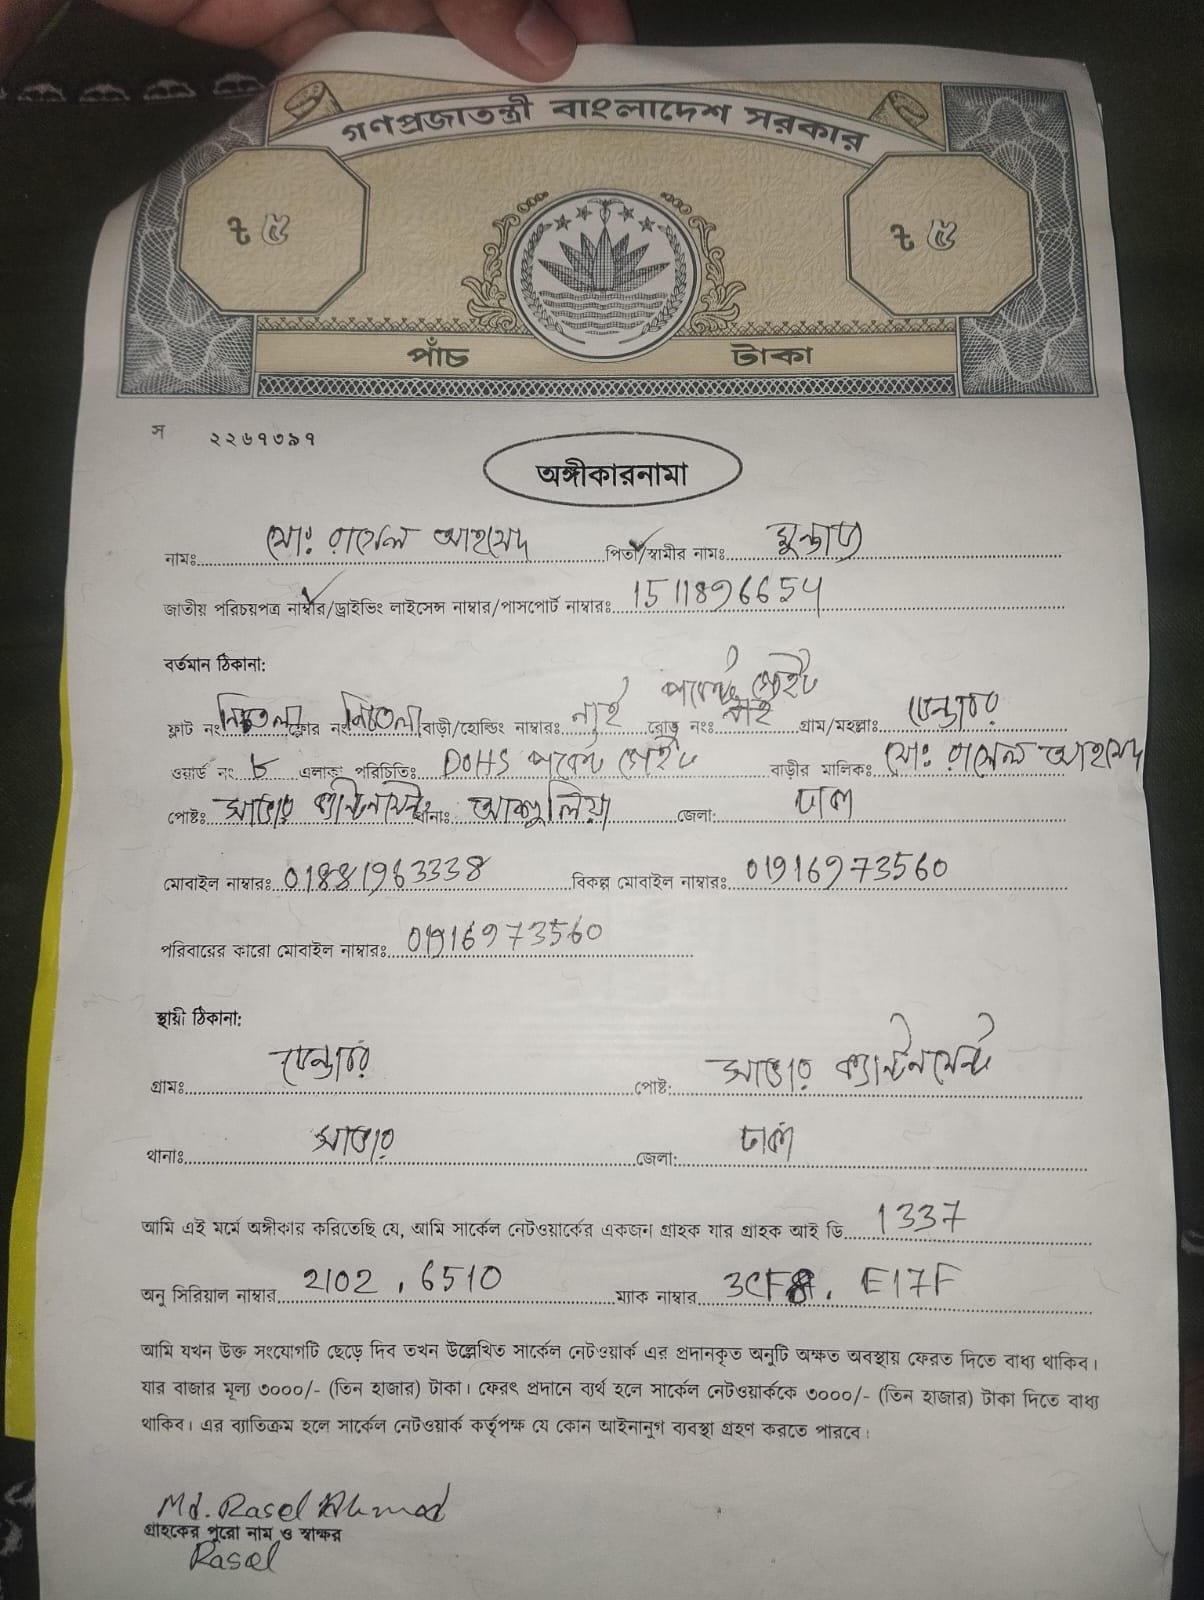 গণপ্রজাতন্ত্রী বাংলাদেশ সরকার
৳ ৫ ৳ ৫
পাঁচ টাকা
স ২২৬৭৩৯৭
অঙ্গীকারনামা
নামঃ মোঃ রাসেল আহমেদ পিতা/স্বামীর নামঃ
জাতীয় পরিচয়পত্র নাম্বার/ড্রাইভিং লাইসেন্স নাম্বার/পাসপোর্ট নাম্বারঃ 1511896654
বর্তমান ঠিকানা:
পকেট গেইট
ফ্লাট নং নিচতলা ফ্লোর নং নিচতলা বাড়ী/হোল্ডিং নাম্বারঃ নাই রোড নংঃ নাই গ্রাম/মহল্লাঃ
ওয়ার্ড নং ৮ এলাকা পরিচিতিঃ DOHS পকেট গেইট বাড়ীর মালিকঃ মোঃ রাসেল আহমেদ
পোষ্টঃ সাভার ক্যান্টনমেন্ট থানাঃ আশুলিয়া জেলা: ঢাকা
মোবাইল নাম্বারঃ 01881963338 বিকল্প মোবাইল নাম্বারঃ 01916973560
পরিবারের কারো মোবাইল নাম্বারঃ 01916973560
স্থায়ী ঠিকানা:
গ্রামঃ পোষ্ট: সাভার ক্যান্টনমেন্ট
থানাঃ সাভার জেলা: ঢাকা
আমি এই মর্মে অঙ্গীকার করিতেছি যে, আমি সার্কেল নেটওয়ার্কের একজন গ্রাহক যার গ্রাহক আই ডি 1337
অনু সিরিয়াল নাম্বার 2102 . 6510 ম্যাক নাম্বার 3CF8 . E17F
আমি যখন উক্ত সংযোগটি ছেড়ে দিব তখন উল্লেখিত সার্কেল নেটওয়ার্ক এর প্রদানকৃত অনুটি অক্ষত অবস্থায় ফেরত দিতে বাধ্য থাকিব।
যার বাজার মূল্য ৩০০০/- (তিন হাজার) টাকা। ফেরৎ প্রদানে ব্যর্থ হলে সার্কেল নেটওয়ার্ককে ৩০০০/- (তিন হাজার) টাকা দিতে বাধ্য
থাকিব। এর ব্যাতিক্রম হলে সার্কেল নেটওয়ার্ক কর্তৃপক্ষ যে কোন আইনানুগ ব্যবস্থা গ্রহণ করতে পারবে।
Md. Rasel Ahmed
গ্রাহকের পুরো নাম ও স্বাক্ষর
Rasel